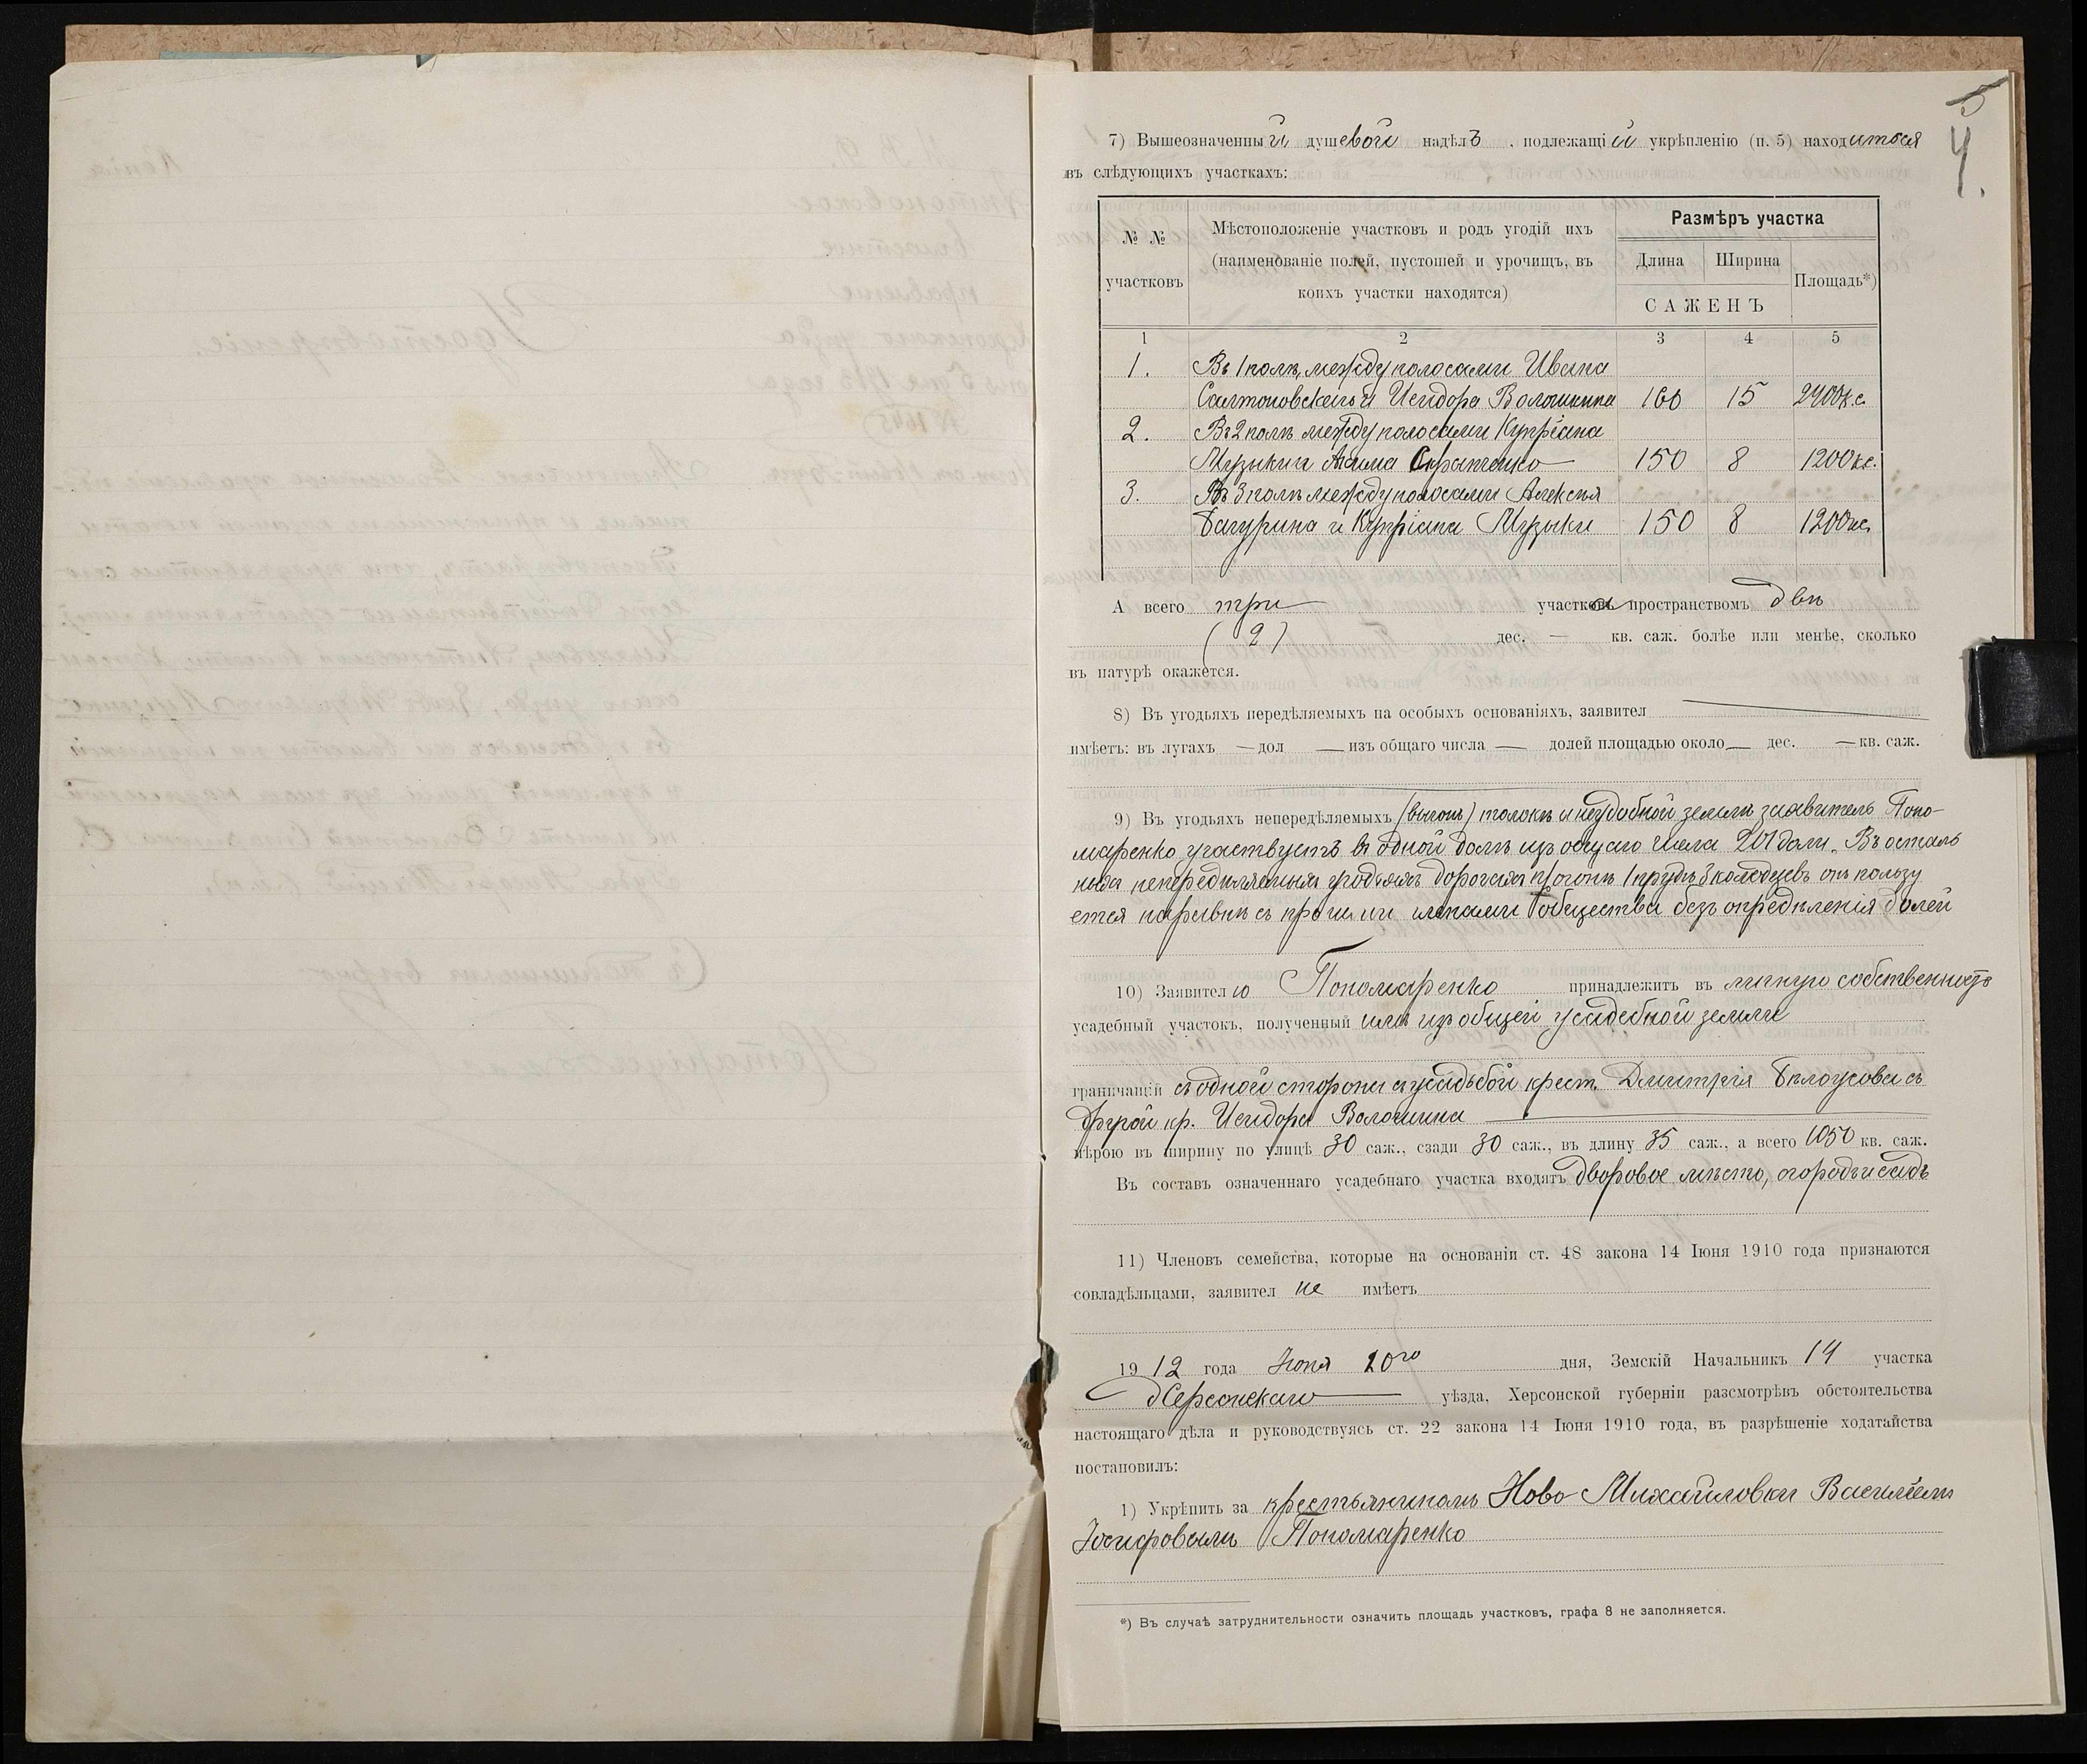 5
4.
7) Вышеозначенный душевой надѣлъ, подлежащій укрѣпленію (п. 5) находиться
въ слѣдующихъ участкахъ:
№ № участковъ
Мѣстоположеніе участковъ и родъ угодій ихъ
(наименованіе полей, пустошей и урочищъ, въ
коихъ участки находятся)
Размѣръ участка
Длина Ширина Площадь*)
САЖЕНЪ
1 2 3 4 5
1. Въ 1 полѣ, между полосами Ивана
и Исидора Волошина 160 15 2400 к.с.
2. Въ 2 полѣ между полосами Купріана
Музыки и 150 8 1200 к.с.
3. Въ 3 полѣ между полосами Алексѣя
Багурина и Купріана Музыки 150 8 1200 к.с.
А всего три участка пространствомъ двѣ
(2) дес. — кв. саж. болѣе или менѣе, сколько
въ натурѣ окажется.
8) Въ угодьяхъ передѣляемыхъ на особыхъ основаніяхъ, заявител
имѣетъ: въ лугахъ — дол — изъ общаго числа — долей площадью около — дес. — кв. саж.
9) Въ угодьяхъ непередѣляемыхъ (выгонъ) толокѣ и неудобной землѣ заявитель Поно-
маренко участвуетъ въ одной долѣ изъ общаго числа 201 доли. Въ осталь
ныхъ непередѣляемыхъ угодьяхъ дорогахъ прогонѣ 1 прудѣ 3 колодцевъ онъ пользу
ется наравнѣ съ прочими членами общества безъ опредѣленія долей
10) Заявителю Пономаренко принадлежитъ въ личную собственность
усадебный участокъ, полученный имъ изъ общей усадебной земли
граничащій съ одной стороны съ усадьбой крест. Дмитрія Бѣлоусова съ
другой кр. Исидора Волошина
мѣрою въ ширину по улицѣ 30 саж., сзади 30 саж., въ длину 35 саж., а всего 1050 кв. саж.
Въ составъ означеннаго усадебнаго участка входятъ дворовое мѣсто, огородъ и садъ
11) Членовъ семейства, которые на основаніи ст. 48 закона 14 Іюня 1910 года признаются
совладѣльцами, заявител не имѣетъ
1912 года Іюня 20го дня, Земскій Начальникъ 14 участка
Херсонскаго уѣзда, Херсонской губерніи разсмотрѣвъ обстоятельства
настоящаго дѣла и руководствуясь ст. 22 закона 14 Іюня 1910 года, въ разрѣшеніе ходатайства
постановилъ:
1) Укрѣпить за крестьяниномъ Ново Михайловки Василіемъ
Іосифовымъ Пономаренко
*) Въ случаѣ затруднительности означить площадь участковъ, графа 8 не заполняется.